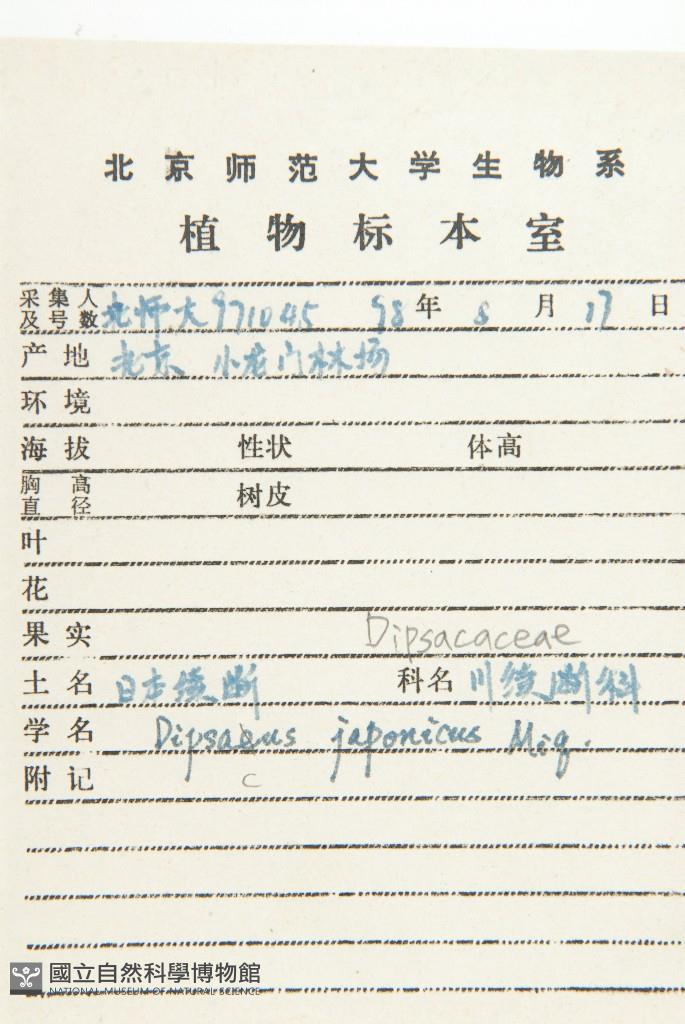 北京师范大学生物系
植物标本室
采集人及号数 北师大971045 98年8月17日
产地 北京 小龙门林场
环境
海拔 性状 体高
胸高直径 树皮
叶
花
果实 Dipsacaceae
土名 日本续断 科名 川续断科
学名 Dipsaeus japonicus Miq.
附记 c
國立自然科學博物館
NATIONAL MUSEUM OF NATURAL SCIENCE